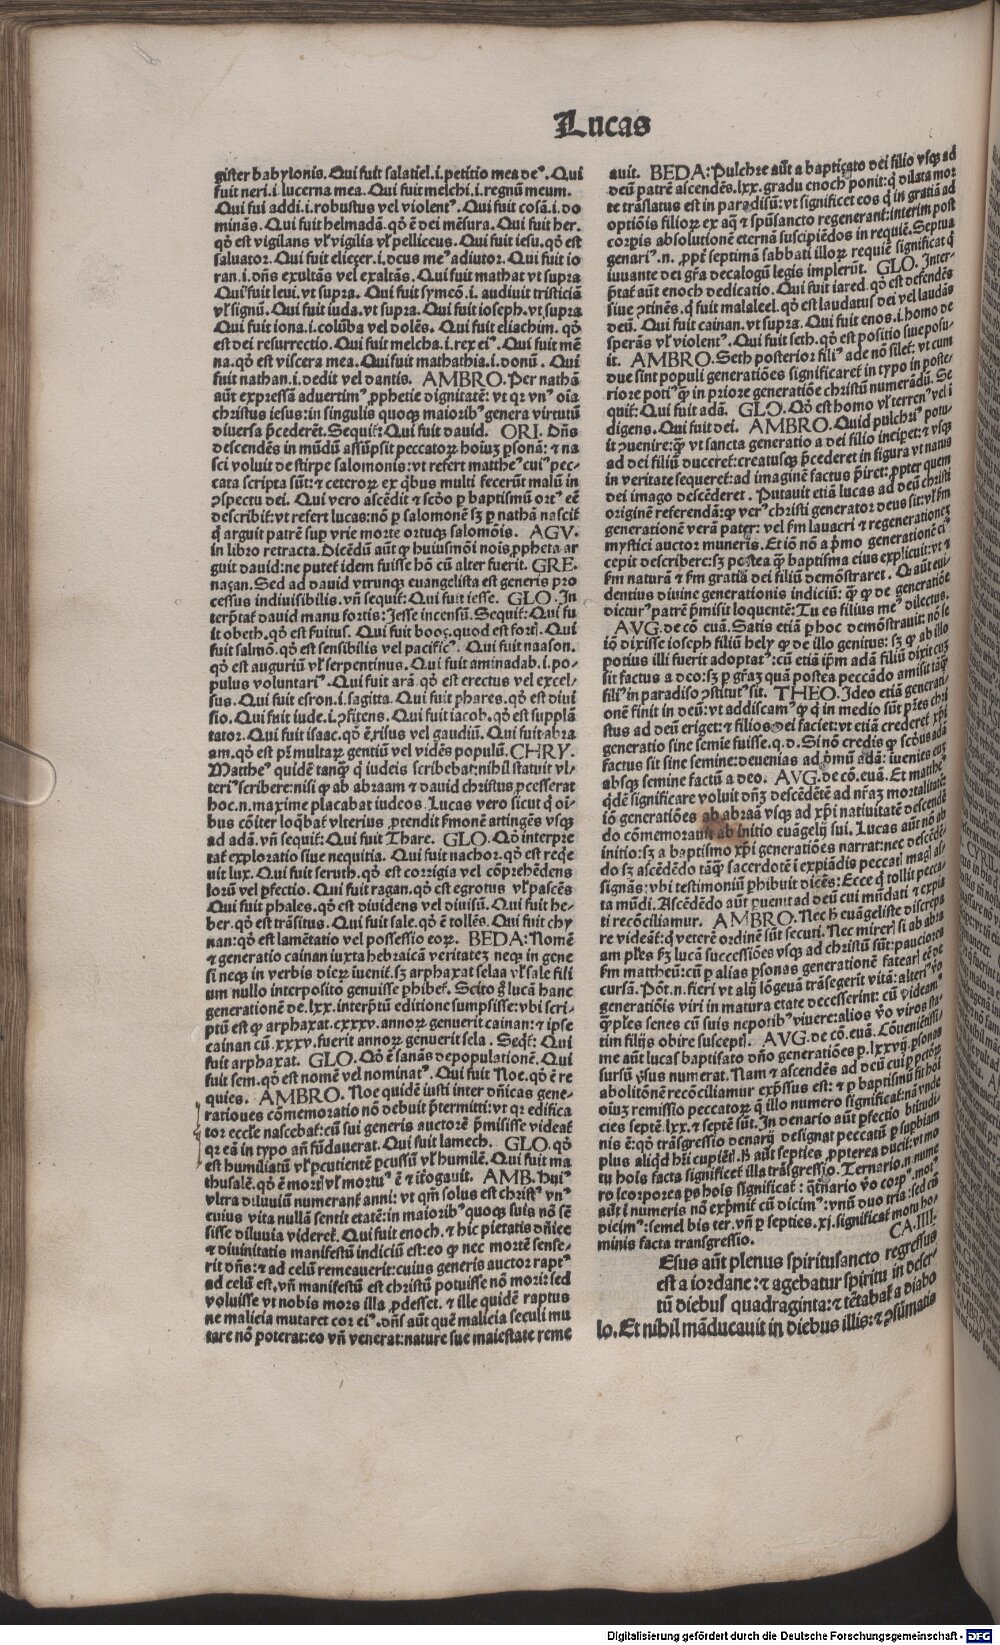 Lucas
gister babylonis. Qui fuit salatiel.i.petitio mea deꝰ. Qui
fuit neri.i lucerna mea. Qui fuit melchi.i.regnũ meum.
Qui fui addi.i.robustus vel violentꝰ. Qui fuit cosã.i.do
minãs. Qui fuit helmadã.qđ ẽ dei mẽsura. Qui fuit her.
qđ est vigilans vl' vigilia vl' pelliceus. Qui fuit iesu.qđ est
saluator. Qui fuit eliezer.i.deus meꝰ adiutor. Qui fuit io
ran.i.dñs exultãs vel exaltãs. Qui fuit mathat vt supra
Qui fuit leui.vt supra. Qui fuit symeõ.i.audiuit tristiciã
vl' signũ. Qui fuit iuda.vt supra. Qui fuit ioseph.vt supra
Qui fuit iona.i.colũba vel dolẽs. Qui fuit eliachim.qđ
est dei resurrectio. Qui fuit melcha.i.rex eiꝰ. Qui fuit mẽ
na.qđ est viscera mea. Qui fuit mathathia.i.donũ. Qui
fuit nathan.i.dedit vel dantis. AMBRO. Per nathã
aũt expressã aduertimꝰ ꝓphetie dignitatẽ: vt qr vnꝰ oia
christus iesus: in singulis quoqꝫ maioribꝰ genera virtutũ
diuersa p̃cederẽt. Sequit̃: Qui fuit dauid. ORI. Dñs
descendẽs in mũdũ assũpsit peccatoꝝ hoiuꝫ ꝑsonã: ⁊ na
sci voluit de stirpe salomonis: vt refert mattheꝰ cuiꝰ pec-
cata scripta sũt: ⁊ ceteroꝝ ex q̃bus multi fecerũt malũ in
ꝯspectu dei. Qui vero ascẽdit ⁊ scđo ꝑ baptismũ ortꝰ eẽ
describit̃: vt refert lucas: nõ ꝑ salomonẽ sꝫ ꝑ nathã nascit̃
q̃ arguit patrẽ sup vrie morte ortuqꝫ salomõis. AGV.
in libro retracta. Dicẽdũ aũt ꝙ huiusmõi nois ꝓpheta ar
guit dauid: ne putet̃ idem fuisse hõ cũ alter fuerit. GRE.
naçan. Sed ad dauid vtrunqꝫ euangelista est generis pro
cessus indiuisibilis. vñ sequit̃: Qui fuit iesse. GLO. In
terp̃tat̃ dauid manu fortis: Iesse incensũ. Sequit̃: Qui fu
it obeth.qđ est fuitus. Qui fuit booç.quod est fortꝭ. Qui
fuit salmõ.qđ est sensibilis vel pacificꝰ. Qui fuit naason.
qđ est auguriũ vl' serpentinus. Qui fuit aminadab.i.po-
pulus voluntariꝰ. Qui fuit arã.qđ est erectus vel excel-
sus. Qui fuit esron.i.sagitta. Qui fuit phares.qđ est diui
sio. Qui fuit iude.i.ꝯfitens. Qui fuit iacob.qđ est supplã
tator. Qui fuit isaac.qđ ẽ risus vel gaudiũ. Qui fuit abra
am.qđ est pr̃ multaꝝ gentiũ vel vidẽs populũ. CHRY.
Mattheꝰ quidẽ tanqꝫ q̃ iudeis scribebat: nihil statuit vl-
teriꝰ scribere: nisi ꝙ ab abraam ⁊ dauid christus ꝓcesserat
hoc.n.maxime placabat iudeos. Lucas vero sicut q̃ oi-
bus cõiter loq̃bat̃ vlterius ꝓtendit s̃monẽ attingẽs vsqꝫ
ad adã. vñ sequit̃: Qui fuit Thare. GLO. Qđ interpre
tat̃ exploratio siue nequitia. Qui fuit nachor.qđ est reqe
uit lux. Qui fuit seruth.qđ est corrigia vel cõprehẽdens
lorũ vel ꝑfectio. Qui fuit ragan.qđ est egrotus vl' pascẽs
Qui fuit phales.qđ est diuidens vel diuisũ. Qui fuit he-
ber.qđ est trãsitus. Qui fuit sale.qđ ẽ tollẽs. Qui fuit chy
nan: qđ est lamẽtatio vel possessio eoꝝ. BEDA: Nomẽ
⁊ generatio cainan iuxta hebraicã veritateꝫ neqꝫ in gene
si neqꝫ in verbis dieꝝ iuenit̃. sꝫ arphaxat selaa vl' sale fili
um nullo interposito genuisse phibet̃. Scito g̃ lucã hanc
generationẽ de.lxx.interp̃tũ editione sumpsisse: vbi scri-
ptũ est ꝙ arphaxat.cxxxv.annoꝝ genuerit cainan: ⁊ ipse
cainan cũ.xxxv.fuerit annoꝝ genuerit sela. Seqt̃: Qui
fuit arphaxat. GLO. Qđ ẽ sanãs depopulationẽ. Qui
fuit sem.qđ est nomẽ vel nominatꝰ. Qui fuit Noe.qđ ẽ re
quies. AMBRO. Noe quidẽ iusti inter dñicas gene-
rationes cõmemoratio nõ debuit p̃termitti: vt qr edifica
tor eccl̃e nascebat̃: cũ sui generis auctorẽ p̃misisse videat̃
qr eã in typo añ fũdauerat. Qui fuit lamech. GLO. qđ
est humiliatũ vl' ꝑcutientẽ ꝑcussũ vl' humilẽ. Qui fuit ma
thusalẽ.qđ ẽ mors vl' mortuꝰ ẽ ⁊ it̃rogauit. AMB. Huiꝰ
vltra diluuiũ numerant̃ anni: vt qm̃ solus est christꝰ vnꝰ
cuius vita nullã sentit etatẽ: in maioribꝰ quoqꝫ suis nõ sẽ
sisse diluuia videret̃. Qui fuit enoch. ⁊ hic pietatis dñice
⁊ diuinitatis manifestũ indiciũ est: eo ꝙ nec mortẽ sense-
rit dñs: ⁊ ad celũ remeauerit: cuius generis auctor raptꝰ
ad celũ est. vñ manifestũ est christũ potuisse nõ mori: sed
voluisse vt nobis mors illa ꝓdesset. ⁊ ille quidẽ raptus
ne malicia mutaret cor eiꝰ. dñs aũt quẽ malicia seculi mu
tare nõ poterat: eo vñ venerat: nature sue maiestate reme
auit. BEDA: Pulchre aũt a baptiçato dei filio vsqꝫ ad
deũ patrẽ ascendẽs.lxx.gradu enoch ponit: q̃ dilata mor
te trãslatus est in paradisũ: vt significet eos q̃ in gratiã ad
optiõis filioꝝ ex aq̃ ⁊ spũsancto regenerant̃: interim post
corpis absolutionẽ eternã suscipiẽdos in requiẽ. Septua
genariꝰ.n. ꝓpt̃ septimã sabbati illoꝝ requiẽ significat q̃
iuuante dei gr̃a decalogũ legis implerũt. GLO. Inter-
p̃tat̃ aũt enoch dedicatio. Qui fuit iared.qđ est defendẽs
siue ꝯtinẽs. q̃ fuit malaleel.qđ est laudatus dei vel laudãs
deũ. Qui fuit cainan.vt supra. Qui fuit enos.i.homo de
sperãs vl' violentꝰ. Qui fuit seth.qđ est positio siue posu-
it. AMBRO. Seth posterior filiꝰ ade nõ silet̃. vt cum
due sint populi generatiões significaret̃ in typo in poste-
riore potiꝰ q̃ꝫ in priore generatiõe christũ numerãdũ. Se
quit̃: Qui fuit adã. GLO. Qđ est homo vl' terrenꝰ vel i
digens. Qui fuit dei. AMBRO. Quid pulchriꝰ potu-
it ꝯuenire: q̃ꝫ vt sancta generatio a dei filio incipet: ⁊ vsqꝫ
ad dei filiũ duceret̃: creatusqꝫ p̃cederet in figura vt natus
in veritate sequeret̃: ad imaginẽ factus p̃iret: ꝓpter quem
dei imago descẽderet. Putauit etiã lucas ad deũ christi
originẽ referendã: ꝙ verꝰ christi generator deus sit: vl' s̃m
generationẽ verã pater: vel s̃m lauacri ⁊ regenerationeꝫ
mystici auctor muneris. Et iõ nõ a p̃mo generationẽ eiꝰ
cepit describere: sꝫ postea q̃ꝫ baptisma eius explicuit: vt ⁊
s̃m naturã ⁊ s̃m gratiã dei filiũ demõstraret. Qđ aũt eui-
dentius diuine generationis indiciũ: q̃ꝫ ꝙ de generatiõe
dicturꝰ patrẽ p̃misit loquentẽ: Tu es filius meꝰ dilectus.
AVG. de cõ. euã. Satis etiã ꝑ hoc demõstrauit: nõ se
iõ dixisse ioseph filiũ hely ꝙ de illo genitus: sꝫ ꝙ ab illo
potius illi fuerit adoptatꝰ: cũ etiã ip̃m adã filiũ dixit cuꝫ
sit factus a deo: sꝫ ꝑ gr̃aꝫ quã postea peccãdo amisit tãqꝫ
filiꝰ in paradiso ꝯstitutꝰ sit. THEO. Ideo etiã generati-
onẽ finit in deũ: vt addiscamꝰ ꝙ q̃ in medio sũt pr̃es chri
stus ad deũ eriget: ⁊ filios dei faciet: vt etiã crederet̃ xp̃i
generatio sine semie fuisse. q.d. Si nõ credis ꝙ scđus adã
factus sit sine semine: deuenias ad p̃mũ adã: iuenies eũ
absqꝫ semine factũ a deo. AVG. de cõ. euã. Et mattheꝰ
q̃dẽ significare voluit dñꝫ descẽdẽtẽ ad nr̃aꝫ mortalitatẽ
iõ generatiões ab abraã vsqꝫ ad xp̃i natiuitatẽ descẽdẽ
do cõmemorauit ab initio euãgelij sui. Lucas aũt nõ ab
initio: sꝫ a baptismo xp̃i generatiões narrat: nec descẽdẽ
do sꝫ ascẽdẽdo tãqꝫ sacerdotẽ i expiãdis peccatꝭ magꝭ as-
signãs: vbi testimoniũ phibuit dicẽs: Ecce q̃ tollit pecca-
ta mũdi. Ascẽdẽdo aũt ꝑuenit ad deũ cui mũdati ⁊ expia
ti recõciliamur. AMBRO. Nec h̃ euãgeliste discrepa
re videãt: q̃ veterẽ ordinẽ sũt secuti. Nec mirerꝭ si ab abra
am ples s̃m lucã successiões vsqꝫ ad christũ sũt: pauciores
s̃m mattheũ: cũ ꝑ alias ꝑsonas generationẽ fatearꝭ eẽ de
cursã. Põt.n. fieri vt alij lõgeuã trãsegerit vitã: alteriꝰ vo
generatiõis viri in matura etate decesserint: cũ videamꝰ
q̃ꝫples senes cũ suis nepotibꝰ viuere: alios vo viros sta-
tim filijs obire susceptꝭ. AVG. de cõ. euã. Cõuenientissi-
me aũt lucas baptisato dño generatiões ꝑ.lxxvij.ꝑsonas
sursũ ṽsus numerat. Nam ⁊ ascendẽs ad deũ cui ꝑ pctõꝝ
abolitõnẽ recõciliamur exp̃ssus est: ⁊ ꝑ baptismũ fit hoi
oiuꝫ remissio peccatoꝝ q̃ illo numero significat̃: nã vnde
cies septẽ.lxx. ⁊ septẽ sũt. In denario aũt ꝑfectio btitudi-
nis ẽ: qđ trãsgressio denarij designat peccatũ ꝑ supbiam
plus aliqd hr̃i cupiẽtꝭ. h̃ aũt septies ꝓpterea ducit̃: vt mo
tu hois facta significet̃ illa trãsgressio. Ternario.n.nume
ro icorporea ps hois significat̃: q̃tnario vo corpꝰ. motꝰ
aũt i numeris nõ exprimit̃ cũ dicimꝰ: vnũ duo tria: sed cũ
dicimꝰ: semel bis ter. vñ ꝑ septies.xj.significat̃ motu ho-
minis facta transgressio. CA.IIII.
Esus aũt plenus spiritusancto regressus
est a iordane: ⁊ agebatur spiritu in deser-
tũ diebus quadraginta: ⁊ tẽtabat̃ a diabo
lo. Et nihil mãducauit in diebus illis: ⁊ ꝯsũmatis
Digitalisierung gefördert durch die Deutsche Forschungsgemeinschaft - DFG